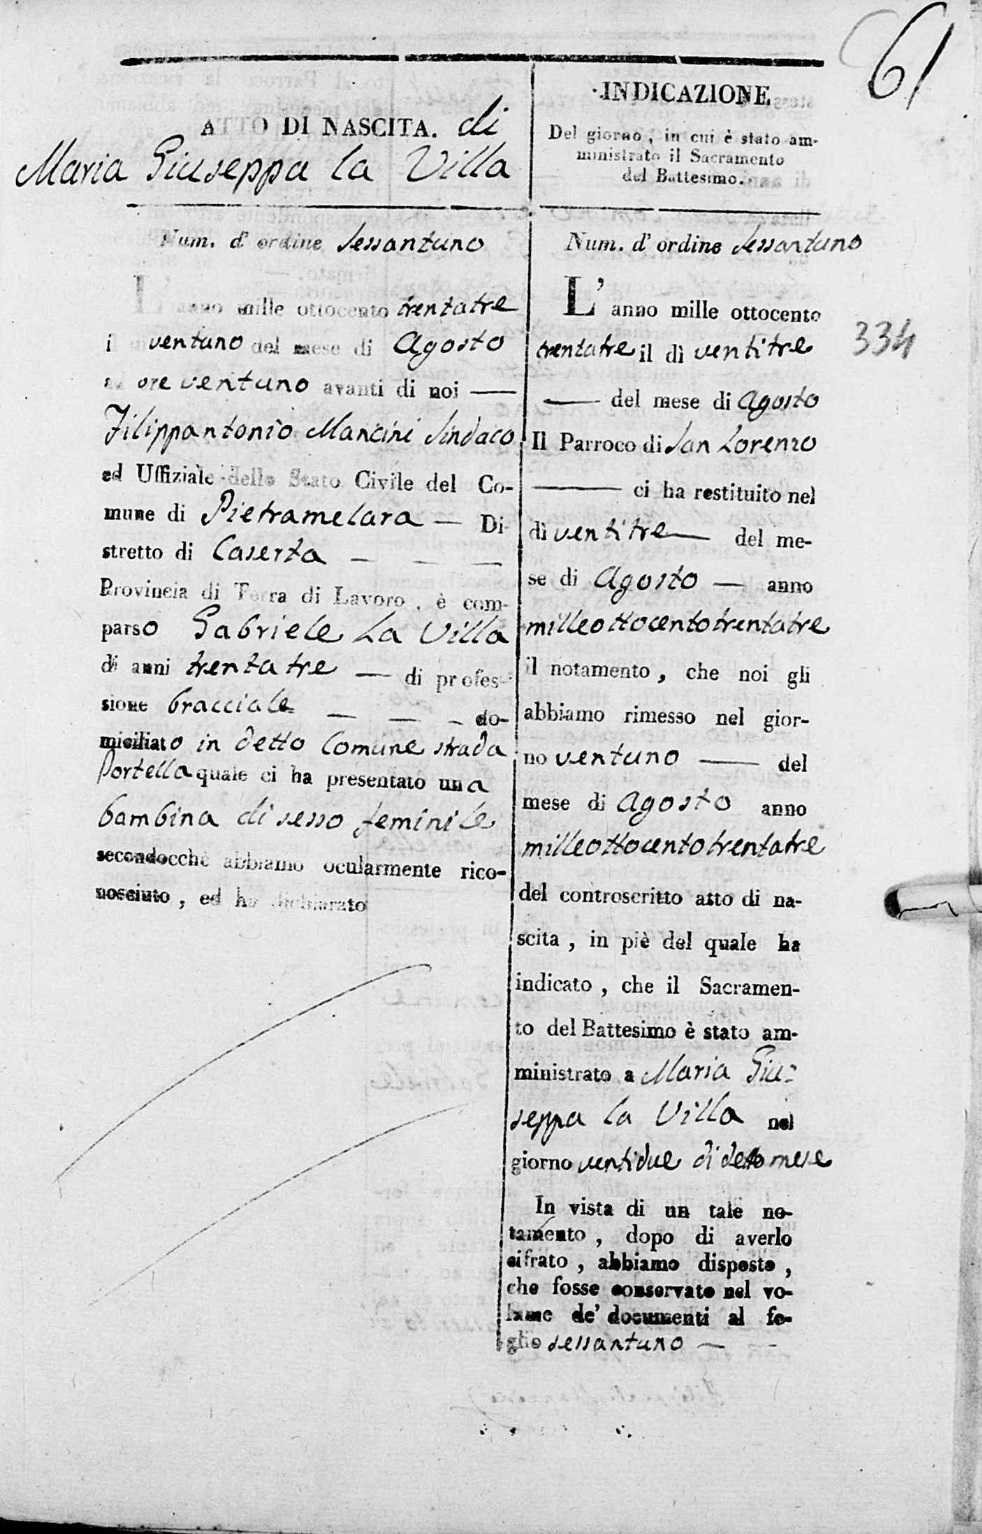 61
ATTO DI NASCITA. di
Maria Giuseppa la Villa
Num. d' ordine Sessantuno
L' anno mille ottocento trentatre
il ventuno del mese di Agosto
ad ore ventuno avanti di noi —
Filippantonio Mancini Sindaco
ed Uffiziale dello Stato Civile del Co-
mune di Pietramelara — Di-
stretto di Caserta — — —
Provincia di Terra di Lavoro, è com-
parso Gabriele La Villa
di anni trentatre — di profes-
sione bracciale — — — do-
miciliato in detto Comune strada
Portella quale ci ha presentato una
bambina di sesso feminile
secondocchè abbiamo ocularmente rico-
nosciuto, ed ha dichiarato
INDICAZIONE
Del giorno, in cui è stato am-
ministrato il Sacramento
del Battesimo.
Num. d' ordine Sessantuno
L' anno mille ottocento
trentatre il dì ventitre
— del mese di Agosto
Il Parroco di San Lorenzo
— ci ha restituito nel
dì ventitre — del me-
se di Agosto — anno
milleottocentotrentatre
il notamento, che noi gli
abbiamo rimesso nel gior-
no ventuno — del
mese di Agosto anno
milleottocentotrentatre
del controscritto atto di na-
scita, in piè del quale ha
indicato, che il Sacramen-
to del Battesimo è stato am-
ministrato a Maria Giu=
seppa la Villa nel
giorno ventidue di detto mese
In vista di un tale no-
tamento, dopo di averlo
cifrato, abbiamo disposto,
che fosse conservato nel vo-
lume de' documenti al fo-
glio sessantuno — —
334